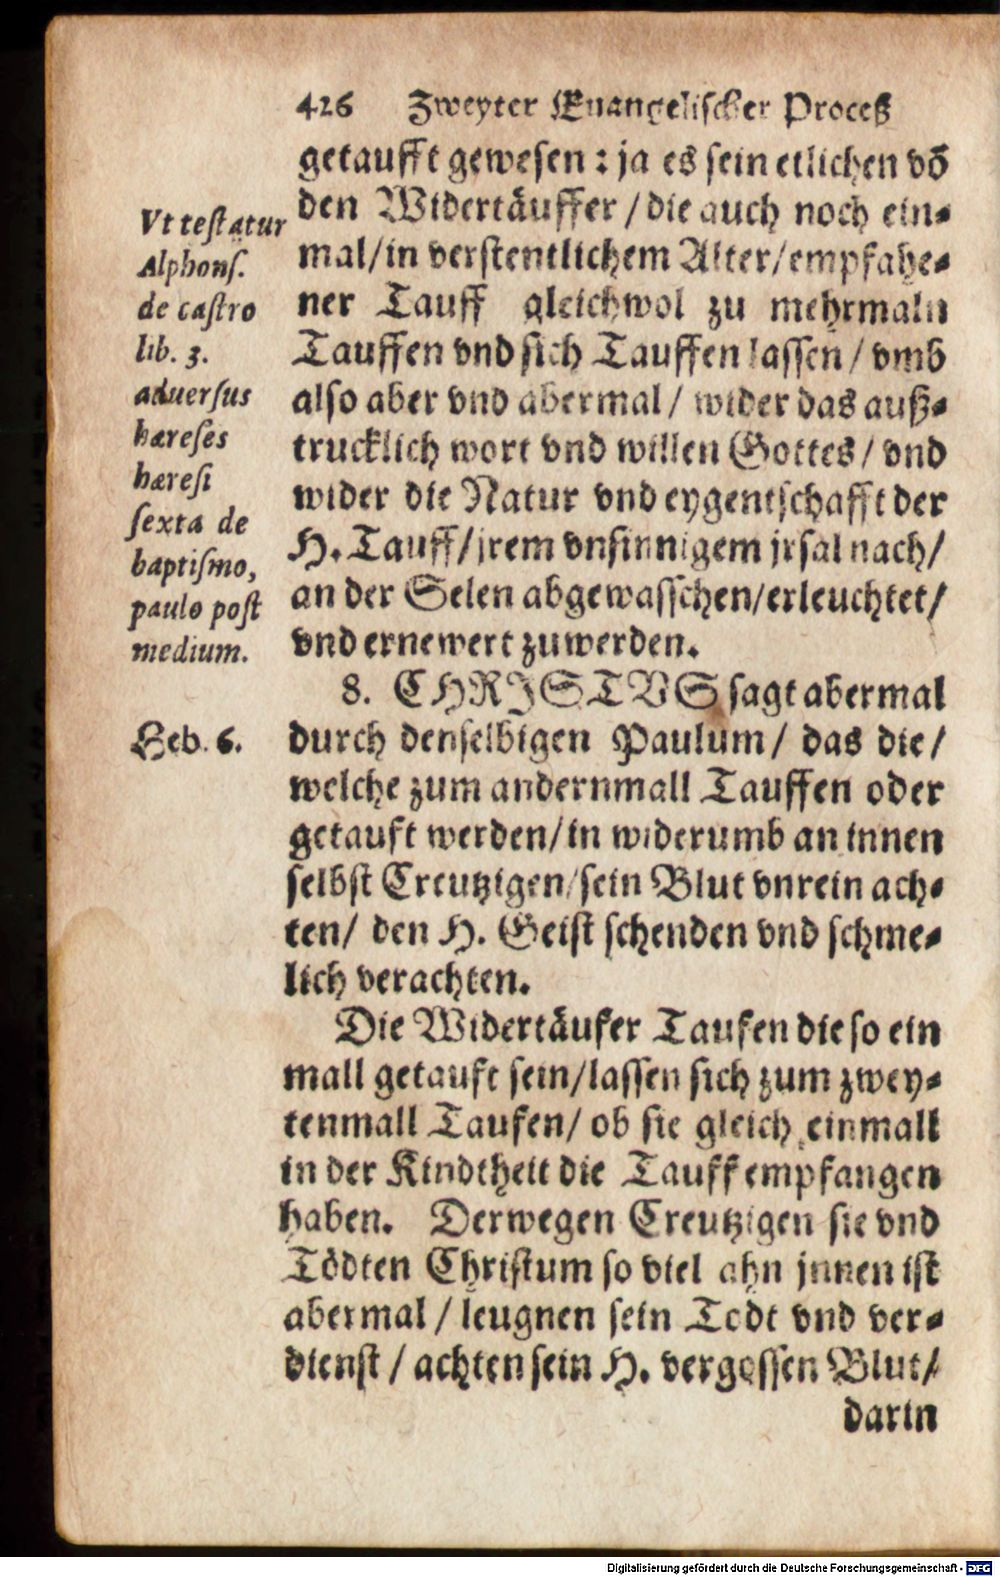 426 Zweyter Euangelischer Proceß
getaufft gewesen : ja es sein etlichen võ
den Widertäuffer / die auch noch ein-
mal/in verstentlichem Alter/empfahe-
ner Tauff gleichwol zu mehrmaln
Tauffen vnd sich Tauffen lassen / vmb
also aber vnd abermal / wider das auß-
trucklich wort vnd willen Gottes / vnd
wider die Natur vnd eygentschafft der
H. Tauff/jrem vnsinnigem jrsal nach/
an der Selen abgewasschen/erleuchtet/
vnd ernewert zuwerden.
8. CHRISTVS sagt abermal
durch denselbigen Paulum / das die/
welche zum andernmall Tauffen oder
getauft werden/in widerumb an innen
selbst Creutzigen/sein Blut vnrein ach-
ten/ den H. Geist schenden vnd schme-
lich verachten.
Die Widertäufer Taufen die so ein
mall getauft sein/lassen sich zum zwey-
tenmall Taufen/ ob sie gleich einmall
in der Kindtheit die Tauff empfangen
haben. Derwegen Creutzigen sie vnd
Tödten Christum so viel ahn jnnen ist
abermal / leugnen sein Todt vnd ver-
dienst / achten sein H. vergossen Blut/
darin
Vt testatur
Alphons.
de castro
lib. 3.
aduersus
hæreses
hæresi
sexta de
baptismo,
paulo post
medium.
Heb. 6.
Digitalisierung gefördert durch die Deutsche Forschungsgemeinschaft - DFG